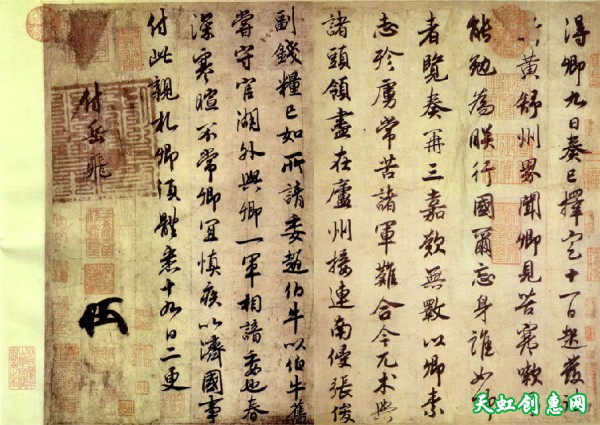 得卿九日奏已擇定十一日起發
黃舒州界聞卿見苦寒嗽
能勉為朕行國爾忘身誰如卿
者覽奏再三嘉歎無斁以卿素
志殄虜常苦諸軍難合今兀朮與
諸頭領盡在廬州接連南侵張俊
副錢糧已如所請委趙伯牛以伯牛舊
嘗守官湖外與卿一軍相諳委也春
深寒暄不常卿宜慎疾以濟國事
付此親札卿須體悉十九日二更
付岳飛
天虹创惠网